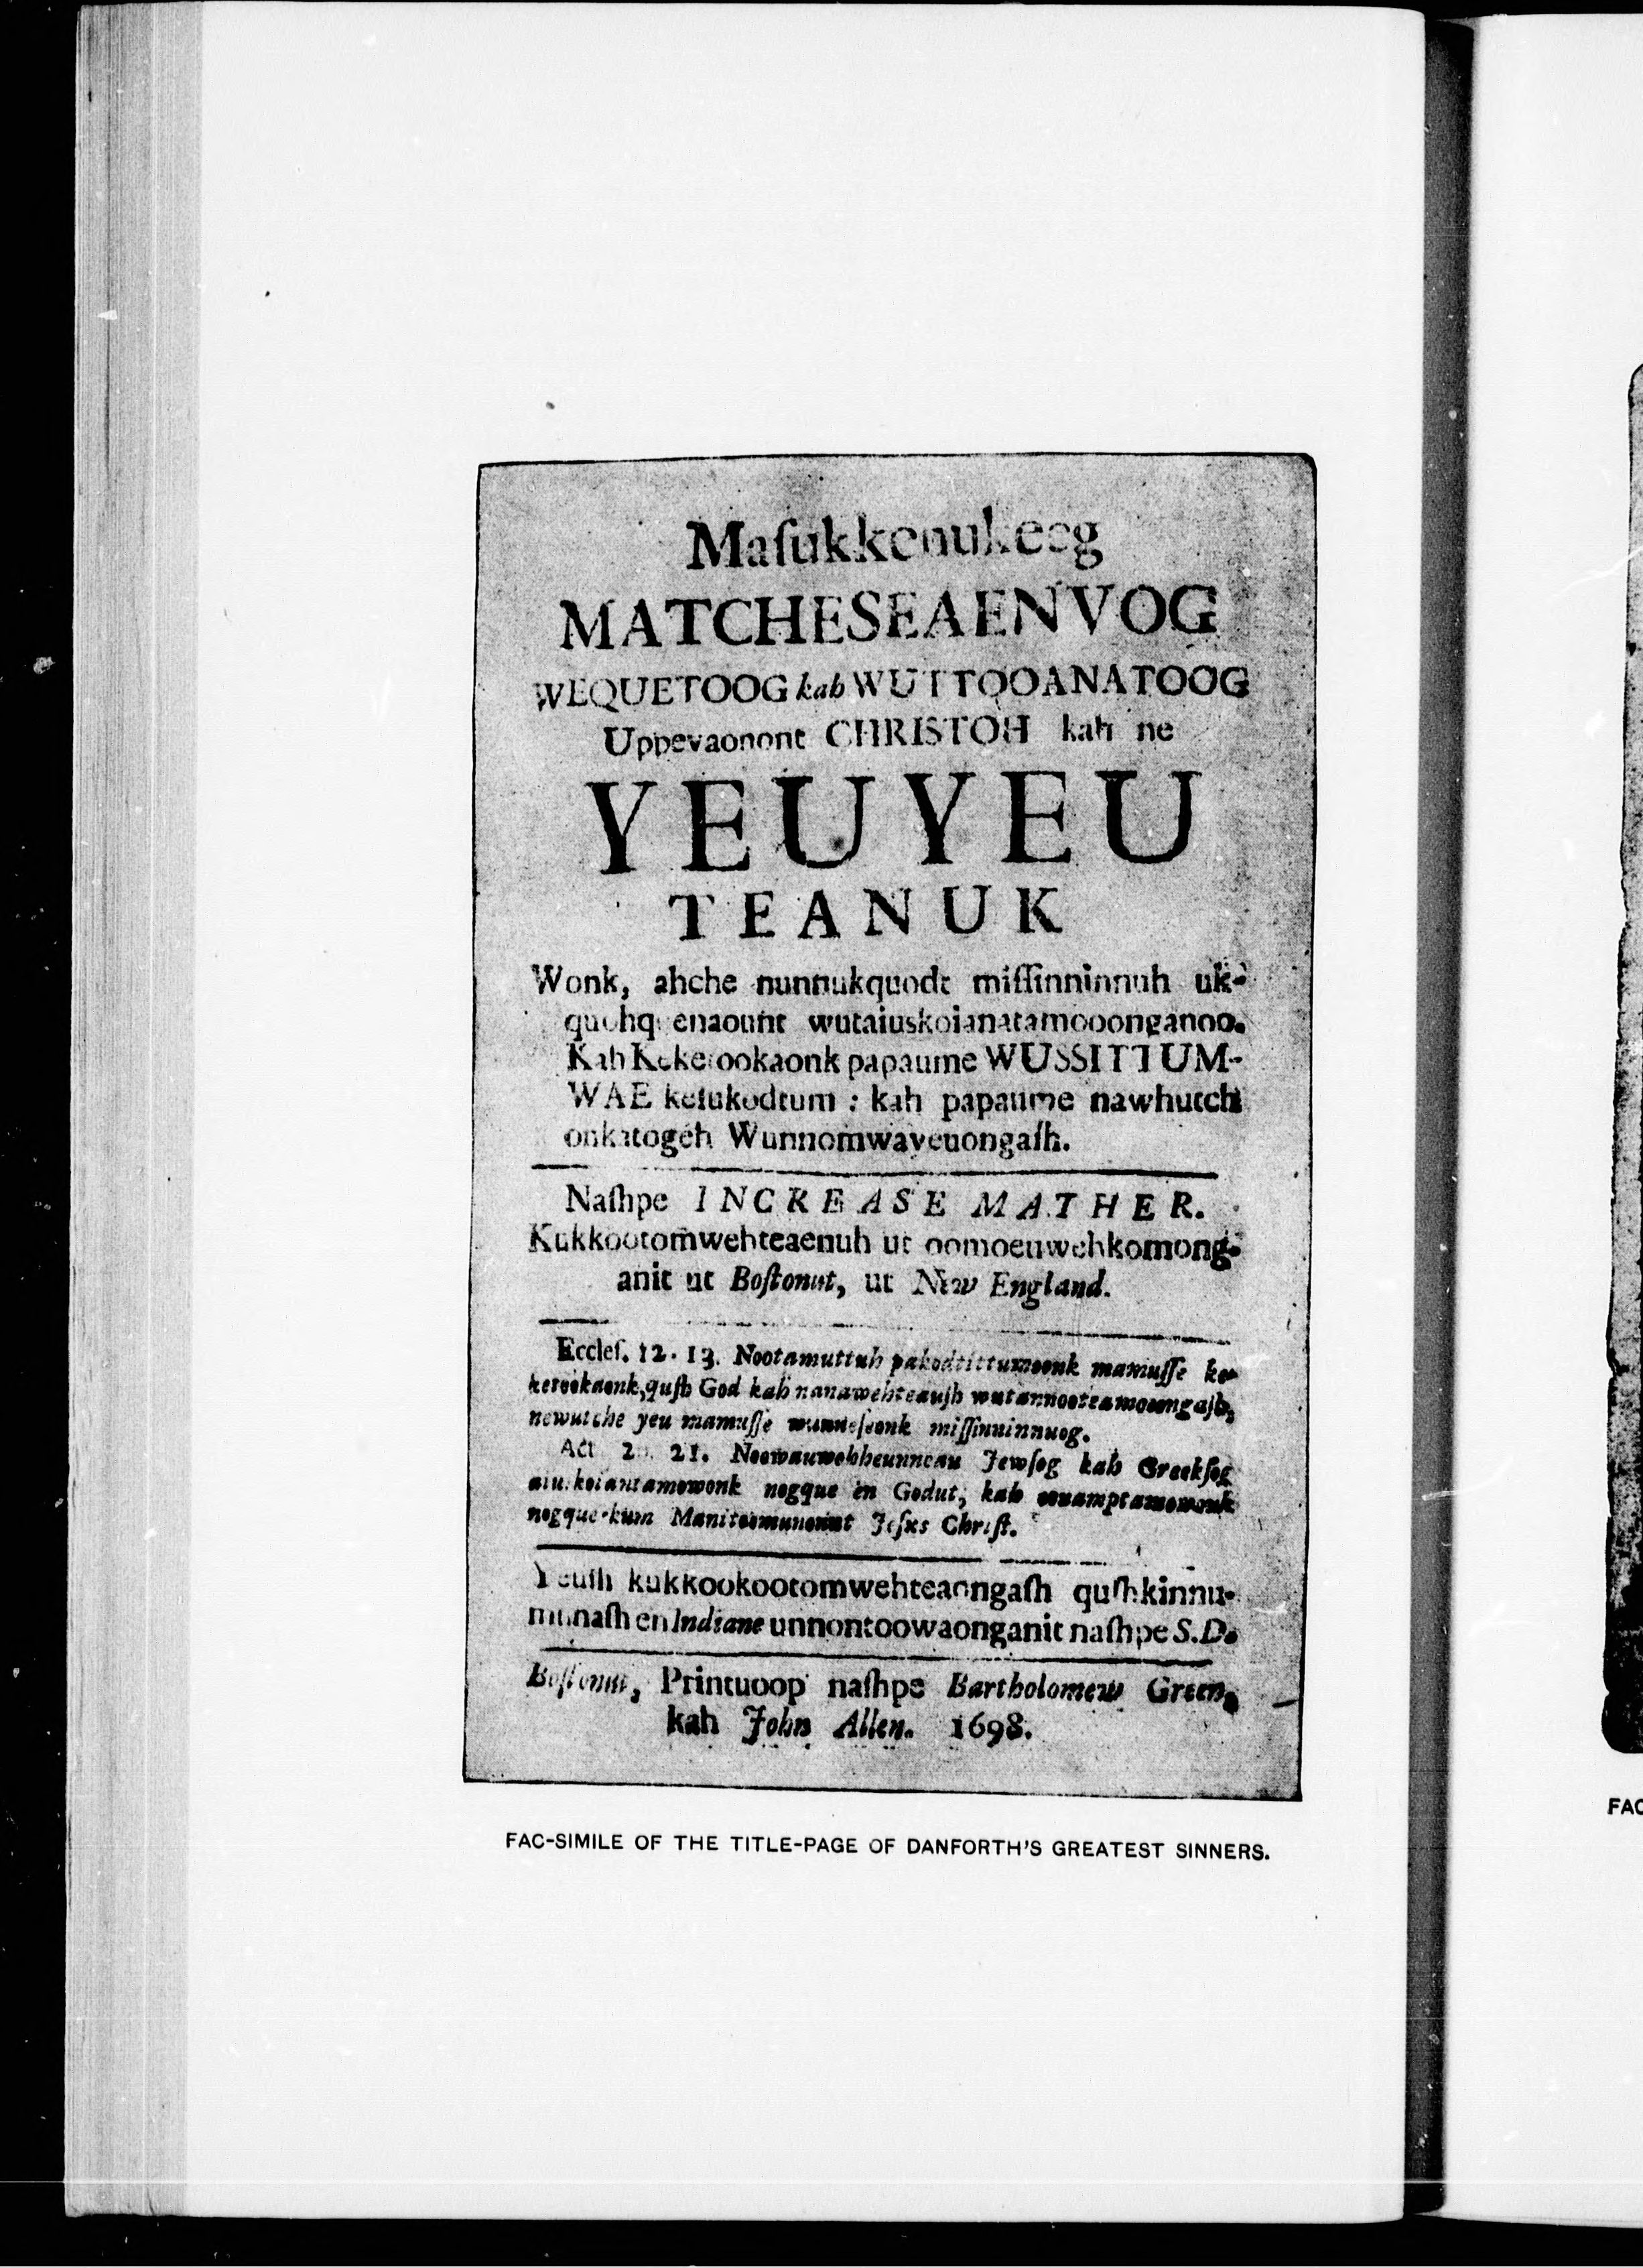 Maſukkenukeeg
MATCHESEAENVOG
WEQUETOOG kah WUTTOOANATOOG
Uppeyaonont CHRISTOH kah ne
YEUYEU
TEANUK
Wonk, ahche nunnukquodt miſſinninnuh uk-
quohquenaount wutaiuskoianatamooonganoo.
Kah Kekerookaonk papaume WUSSITTUM-
WAE keſukodtum : kah papaume nawhutch
onkatogeh Wunnomwayeuongaſh.
Naſhpe INCREASE MATHER.
Kukkootomwehteaenuh ut oomoeuwehkomong-
anit ut Boſtonut, ut New England.
Eccleſ. 12. 13. Nootamuttuh pakodtittumoonk mamuſſe ke-
kerookaonk, quſh God kah nanawehteauſh wutannooteamooongaſh,
newutche yeu mamuſſe miſſinninnuog.
Act 21. Noowauwohheunneau Jewſog kah Greekſog
nogque en Godut, kah oonamptamowonk
nogque kum Manitoomunonut Jeſus Chriſt.
Yeuſh kukkookootomwehteaongaſh quſhkinnu-
munaſh en Indiane unnontoowaonganit naſhpe S.D.
Boſtonut, Printuoop naſhpe Bartholomew Green,
kah John Allen. 1698.
FAC-SIMILE OF THE TITLE-PAGE OF DANFORTH'S GREATEST SINNERS.
FAC